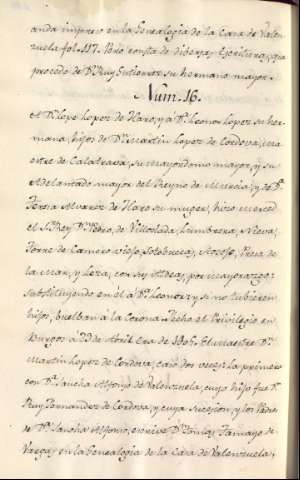 anda impreso en la Genealogia de la Casa de Valen-
zuela fol. 117. Pero consta de diversas Escrituras, que
procede de Dn. Ruy Gutierrez su hermano mayor.
Num. 16.
A Dn. Lope Lopez de Haro, y à Da. Leonor Lopez su her-
mana, hijos de Dn. Martin Lopez de Cordova, Ma-
estre de Calatrava, su mayordomo mayor, y su
Adelantado mayor del Reyno de Murcia, y de Da.
Teresa Alvarez de Haro su muger, hizo merced
el Sr. Rey Dn. Pedro, de Villoslada, Lumbreras, Nieva,
Torre de Camero viejo,
de la mar, y Leza, con sus Aldeas, por mayorazgo:
substituyendo en el à Da. Leonor; y si no tubieren
hijos, buelban à la Corona. Fecho el Privilegio en
Burgos à 23 de Abril Era de 1405. El Maestre Dn.
Martin Lopez de Cordova, casó dos veces: la primera
con Da. Sancha Alfonso de Valenzuela, cuyo hijo fue Dn.
Ruy Fernandez de Cordova; y cuya sucesion, y los Padres
de Da. Sancha Alfonso, escrive Dn. Tomas Tamayo de
Vargas, en la Genealogia de la Casa de Valenzuela,